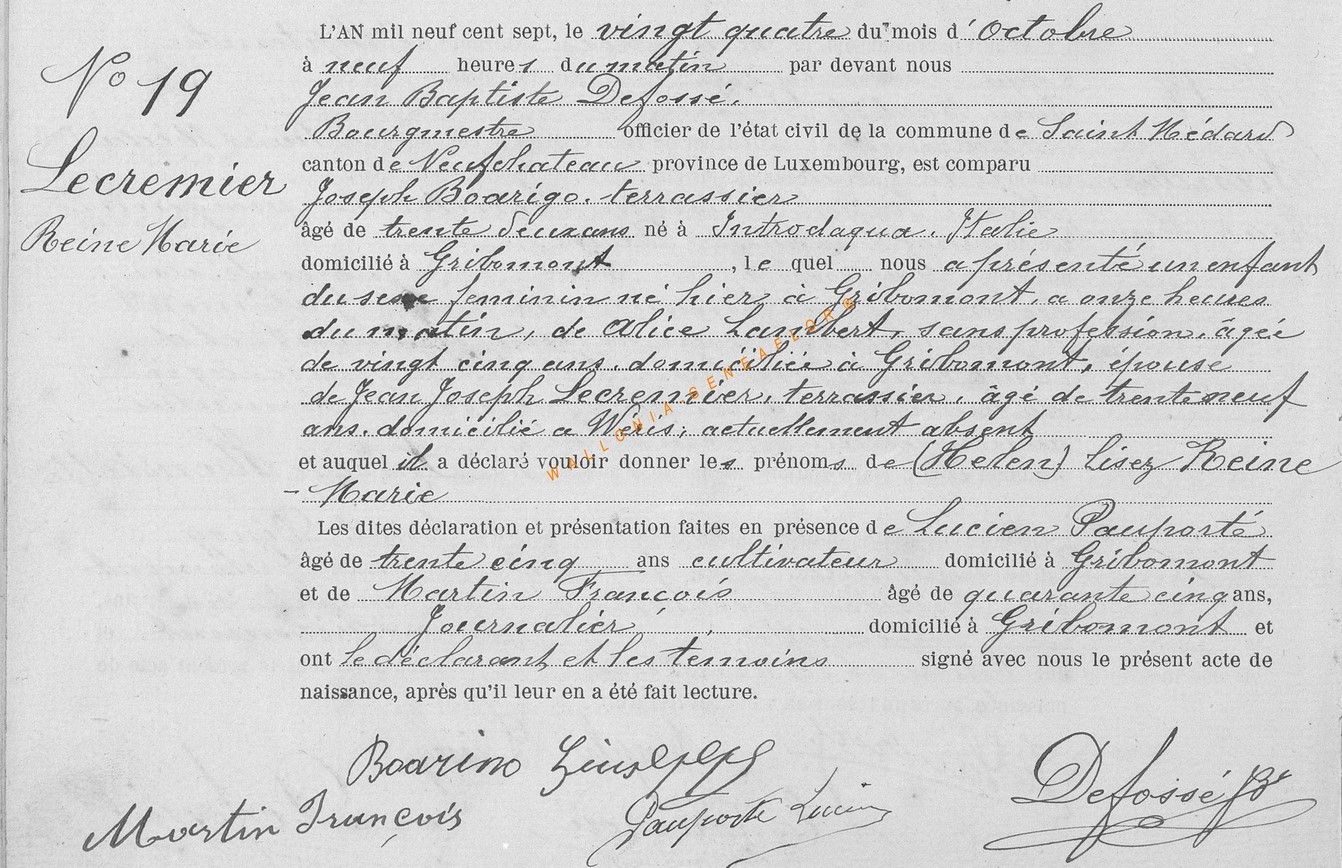 N° 19
Lecremier
Reine Marie
L'AN mil neuf cent sept, le vingt quatre du mois d'octobre
à neuf heures du matin par devant nous
Jean Baptiste Defossé.
Bourgmestre officier de l'état civil de la commune de Saint Médard
canton de Neufchateau province de Luxembourg, est comparu
Joseph Boarigo. terrassier
âgé de trente deux ans né à Introdaqua. Italie
domicilié à Gribomont, le quel nous a présenté un enfant
du sexe feminin né hier à Gribomont, a onze heures
du matin, de Alice Lambert, sans profession, âgée
de vingt cinq ans. domiciliée à Gribomont, épouse
de Jean Joseph Lecremier, terrassier, âgé de trente neuf
ans. domicilié a Wéris; actuellement absent
et auquel il a déclaré vouloir donner les prénoms de (Helen) lisez Reine
- Marie
Les dites déclaration et présentation faites en présence de Lucien Pauporté
âgé de trente cinq ans cultivateur domicilié à Gribomont
et de Martin François âgé de quarante cinq ans,
Journalier, domicilié à Gribomont et
ont le déclarant et les temoins signé avec nous le présent acte de
naissance, après qu'il leur en a été fait lecture.
Boarino Giuseppe
Martin François
Pauporté Lucien
Defossé JB
WALLONIA-GENEAFLORE